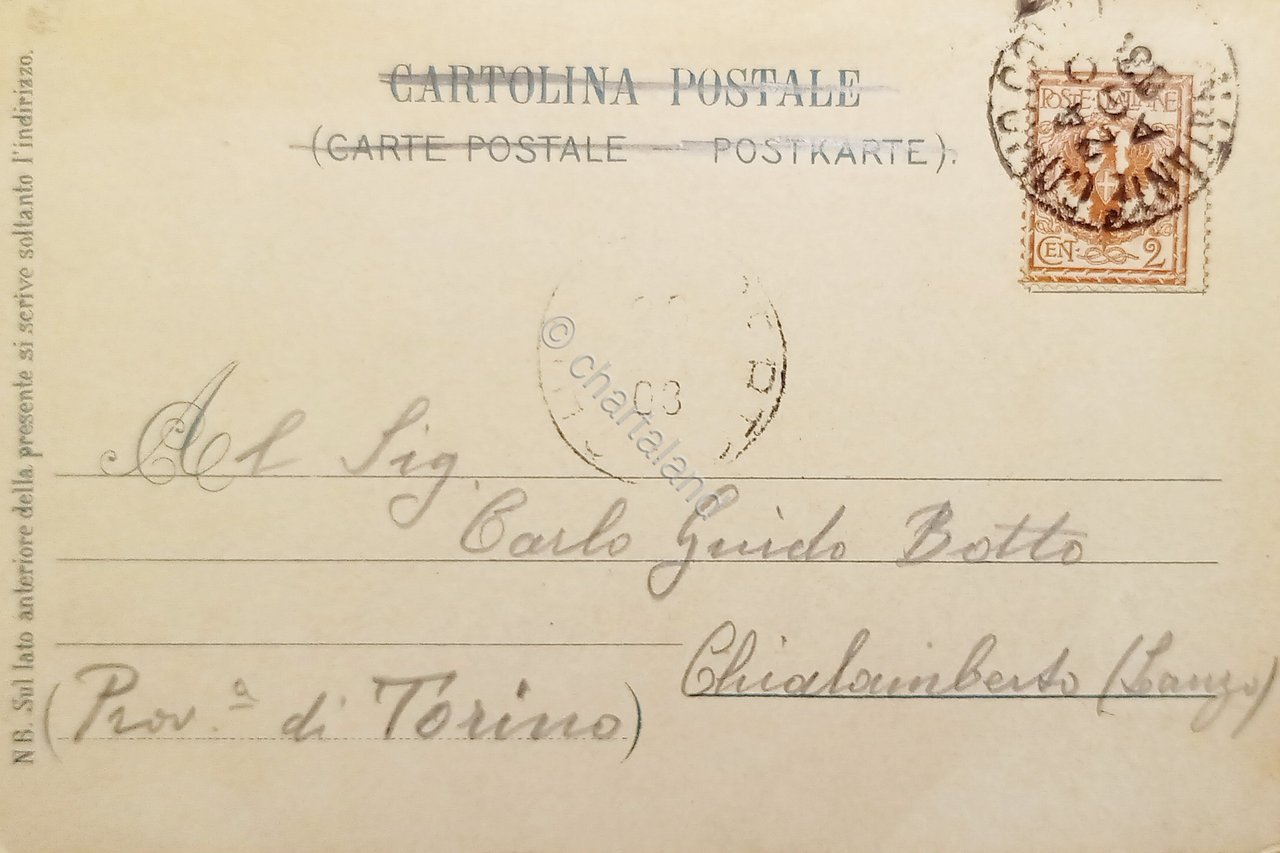 CARTOLINA POSTALE
(CARTE POSTALE — POSTKARTE).
POSTE ITALIANE
CEN. 2
03
© chartaland
Al Sig.
Carlo Guido Botto
Chialamberto (Lanzo)
(Prov.ª di Torino)
NB. Sul lato anteriore della presente si scrive soltanto l'indirizzo.